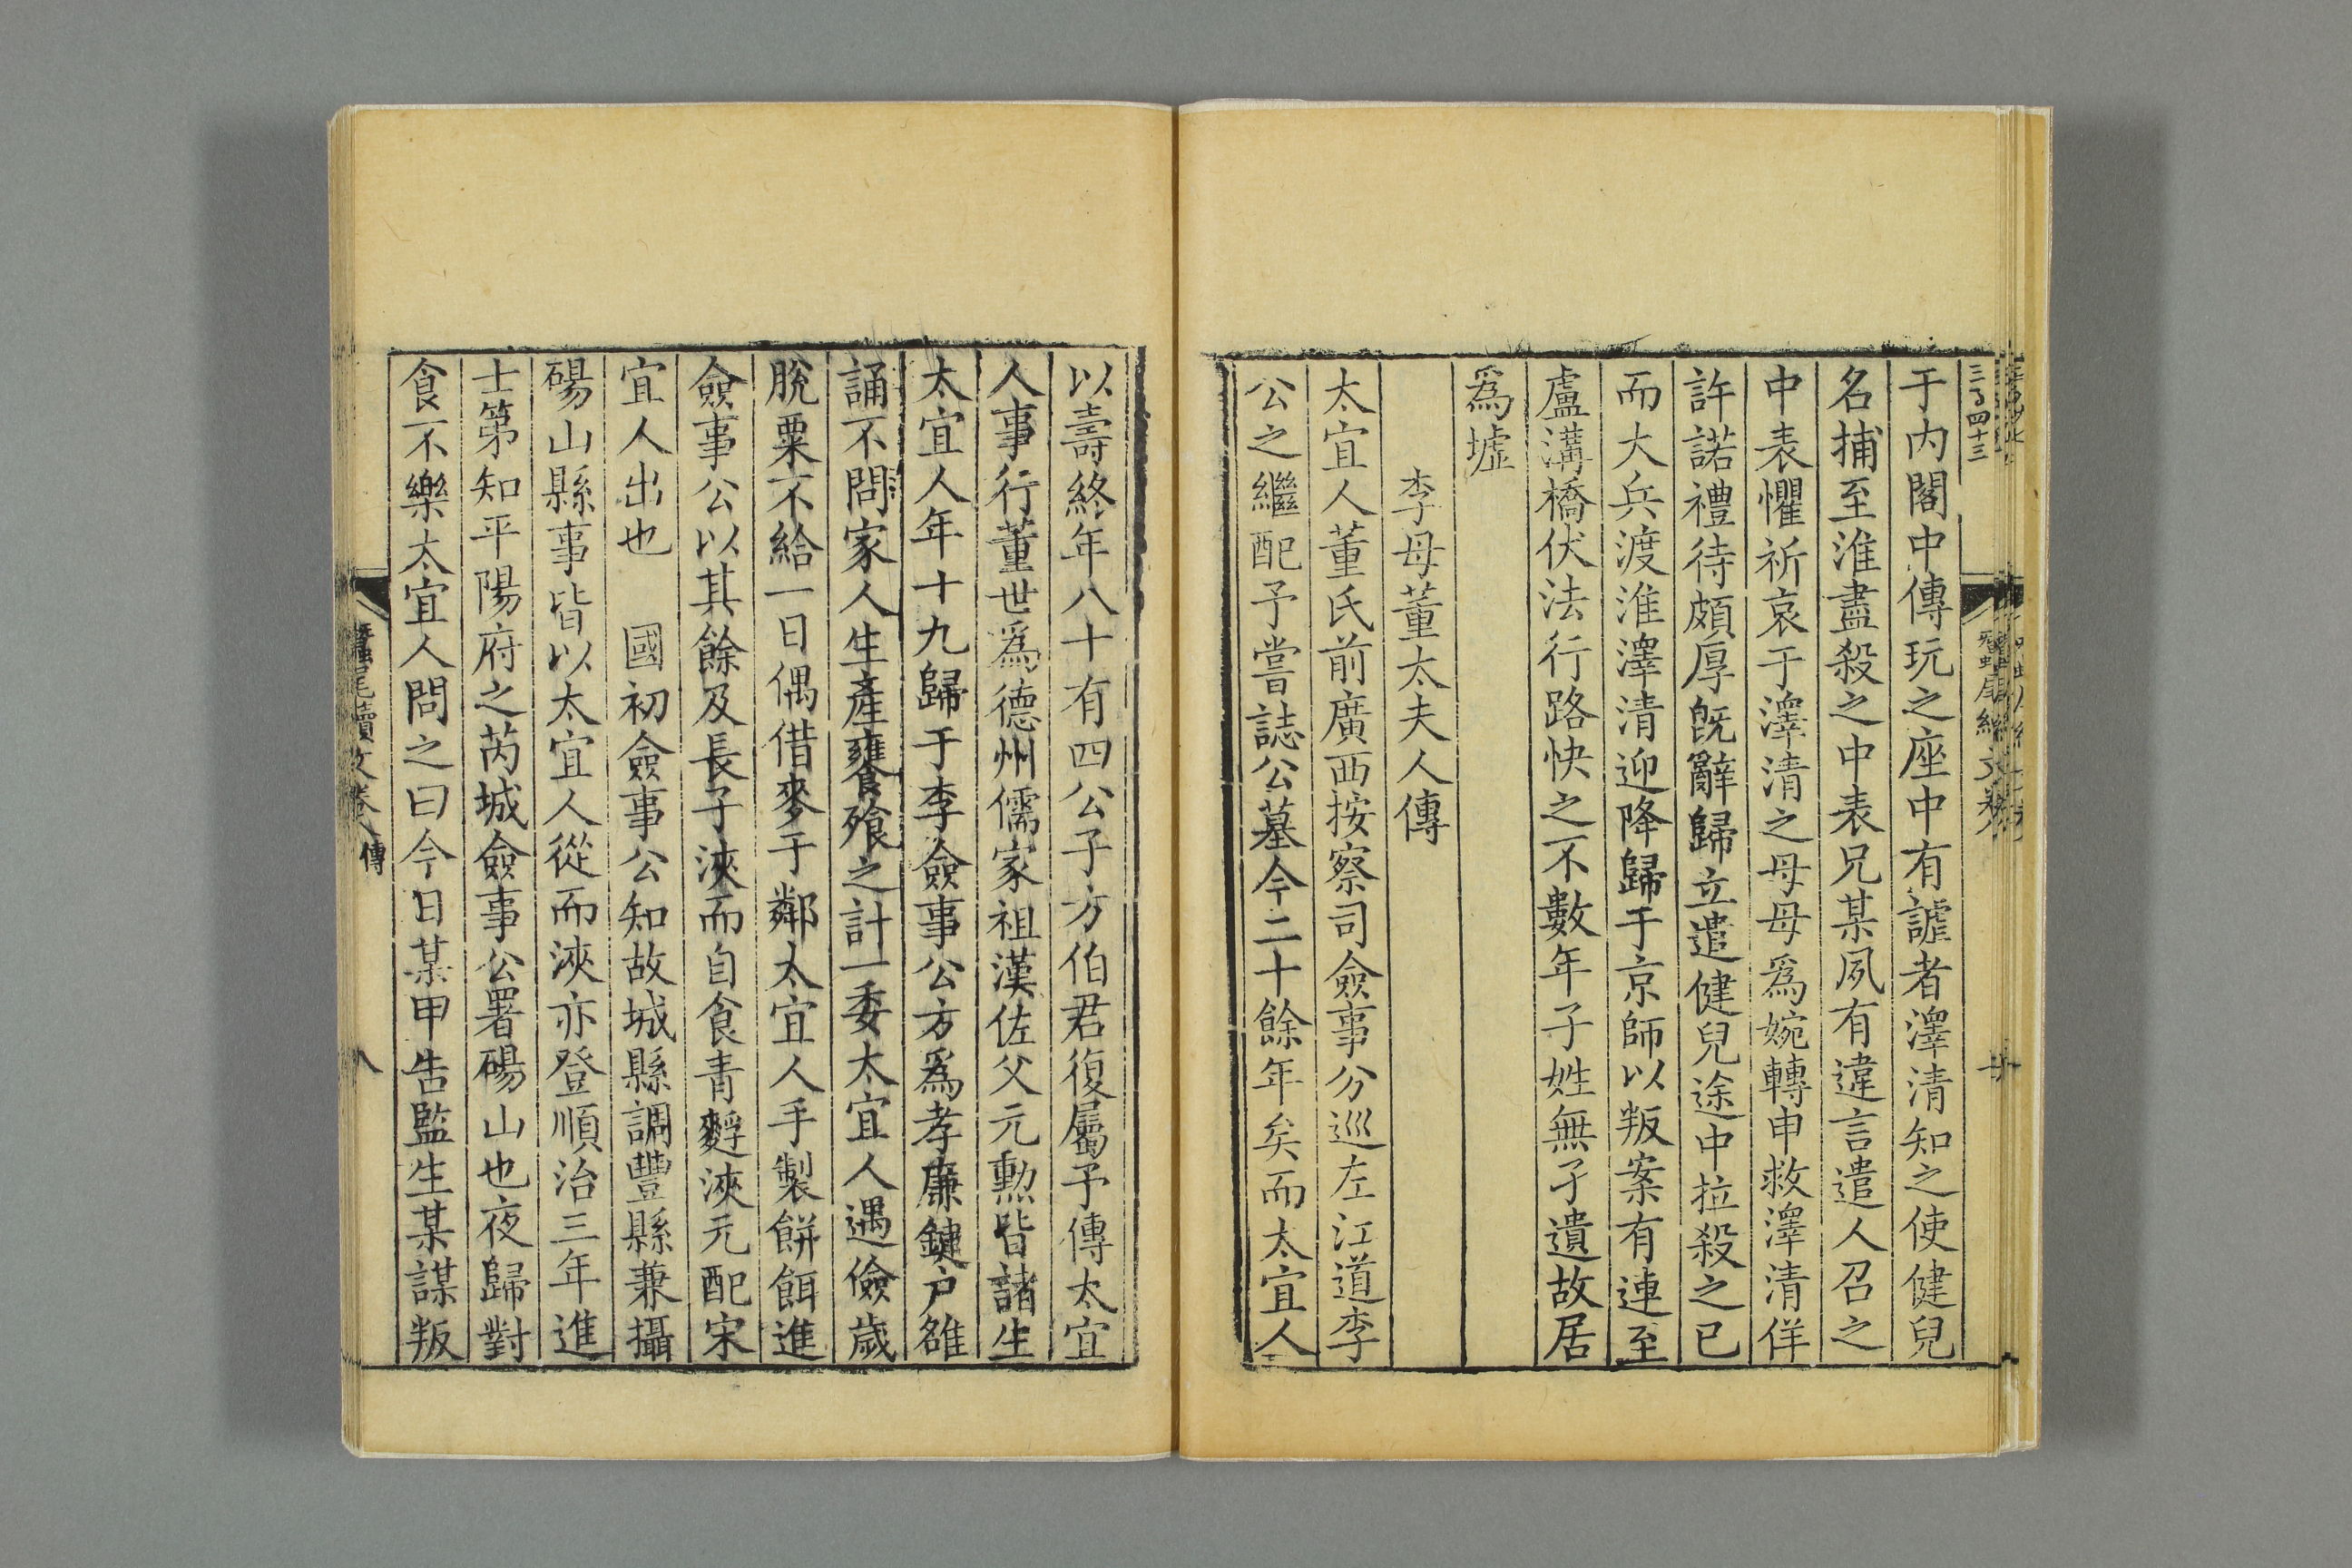 于内閣中傳玩之座中有謔者澤清知之使健兒
名捕至淮盡殺之中表兄某夙有違言遣人召之
中表懼祈哀于澤清之母母爲婉轉申救澤清佯
許諾禮待頗厚旣辭歸立遣健兒途中拉殺之已
而大兵渡淮澤清迎降歸于京師以叛案有連至
盧溝橋伏法行路快之不數年子姓無孑遺故居
爲墟
李母董太夫人傳
太宜人董氏前廣西按察司僉事分巡左江道李
公之繼配予嘗誌公墓今二十餘年矣而太宜人
以壽終年八十有四公子方伯君復屬予傳太宜
人事行董世爲德州儒家祖漢佐父元勲皆諸生
太宜人年十九歸于李僉事公方爲孝廉鍵户雒
誦不問家人生產饔飱之計一委太宜人遇儉歲
脫粟不給一日偶借麥于鄰太宜人手製餅餌進
僉事公以其餘及長子浹而自食青麰浹元配宋
宜人出也　國初僉事公知故城縣調豐縣兼攝
碭山縣事皆以太宜人從而浹亦登順治三年進
士第知平陽府之芮城僉事公署碭山也夜歸對
食不樂太宜人問之曰今日某甲告監生某謀叛
蠶尾續文卷八 傳
八